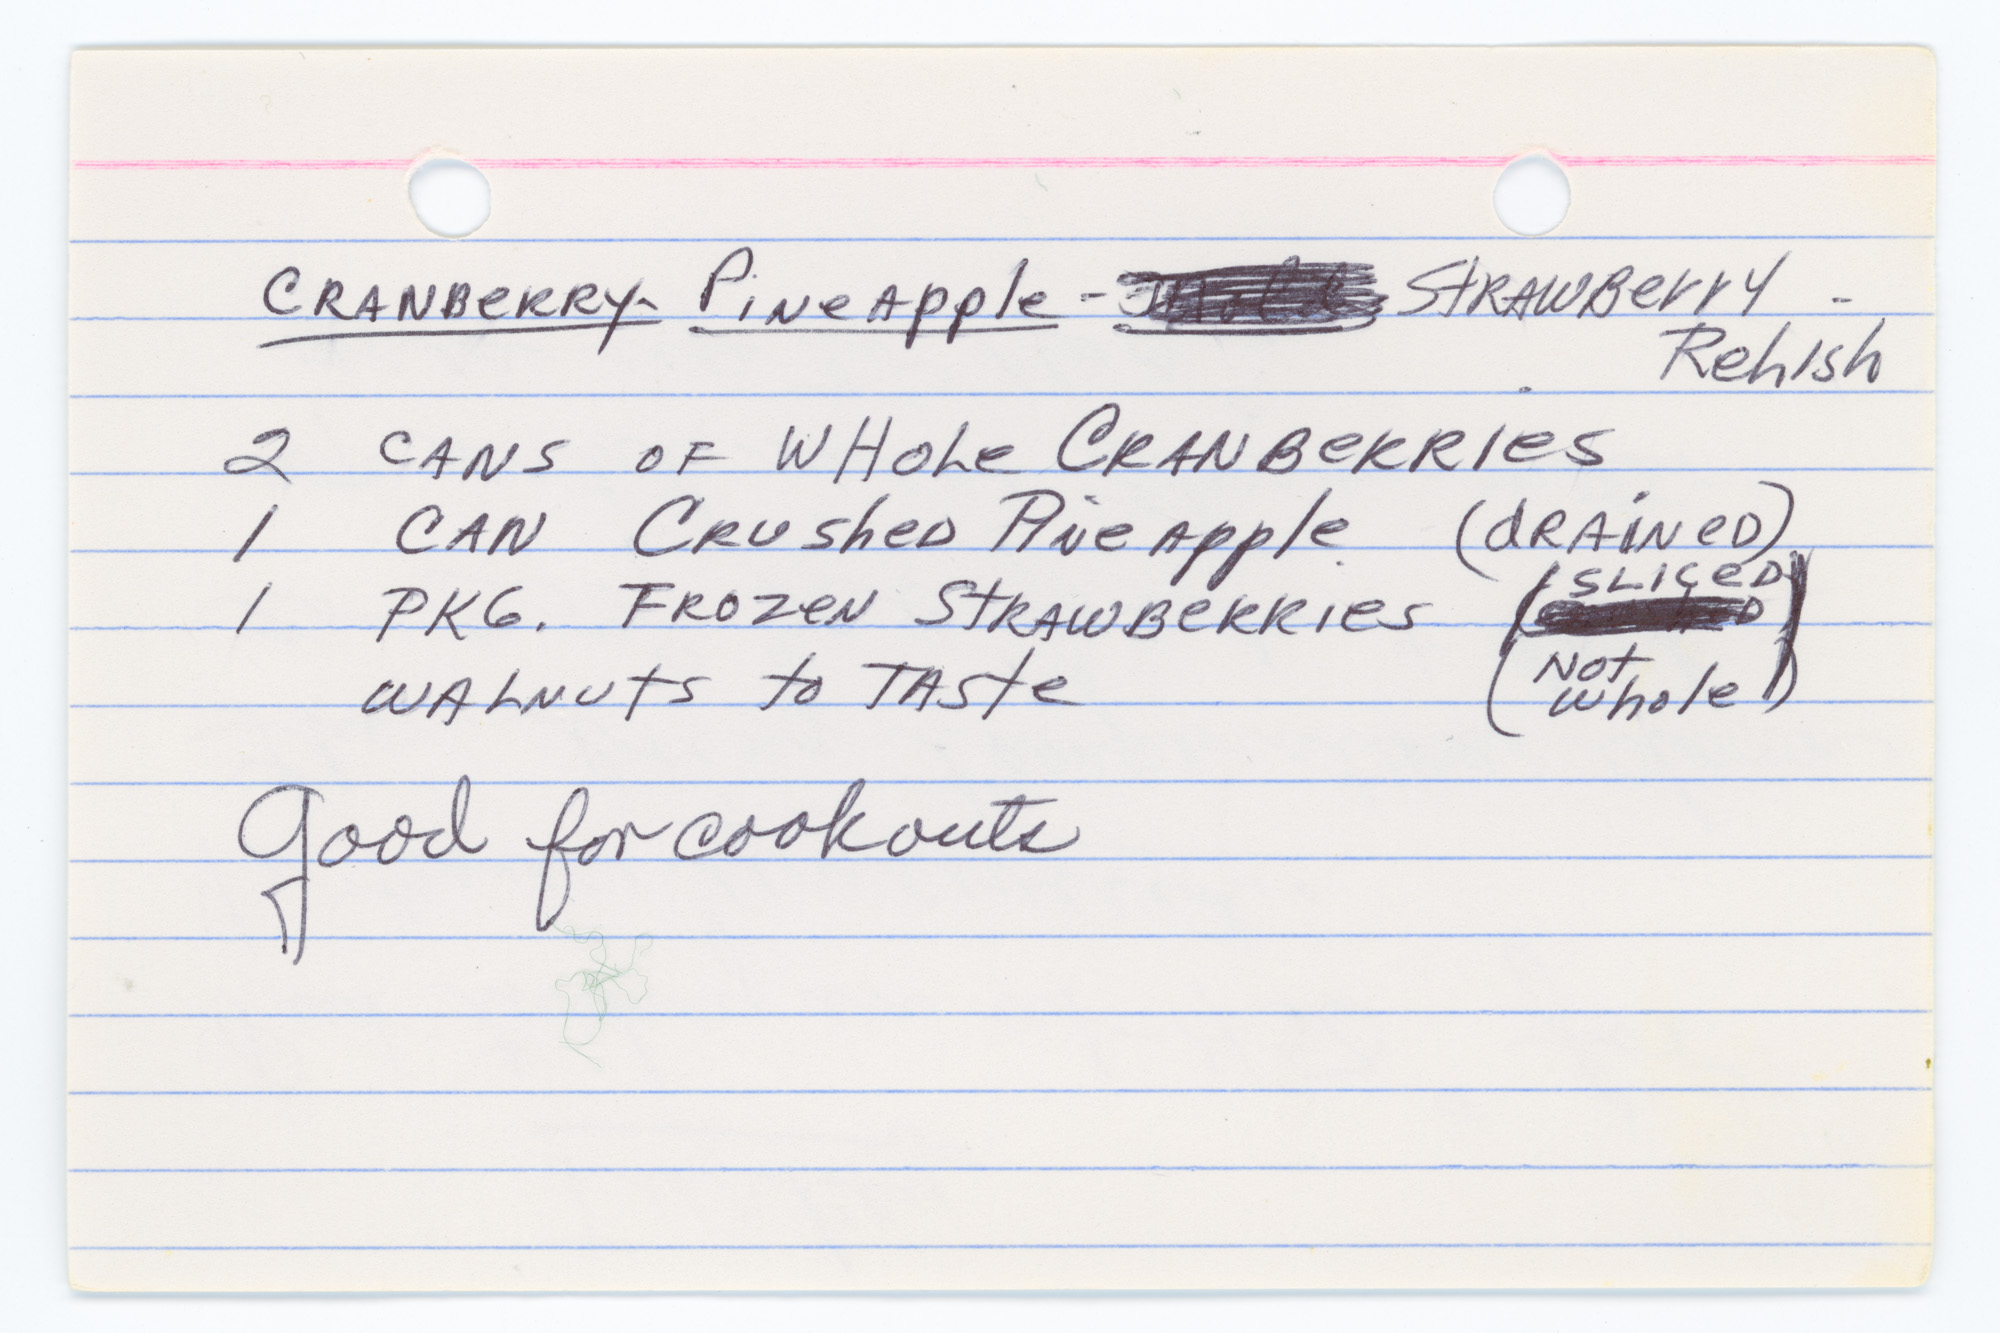 CRANBERRY- PiNeApple - STRAWBerry -
Relish
2 CANS OF WHOLe CRANBeRRIeS
1 CAN CRUSheD PiNeApple (dRAiNeD)
1 PKG. FROZeN STRAWBeRRIeS (SLICeD)
(Not
whole)
WALNUTS to TASte
Good for cookouts